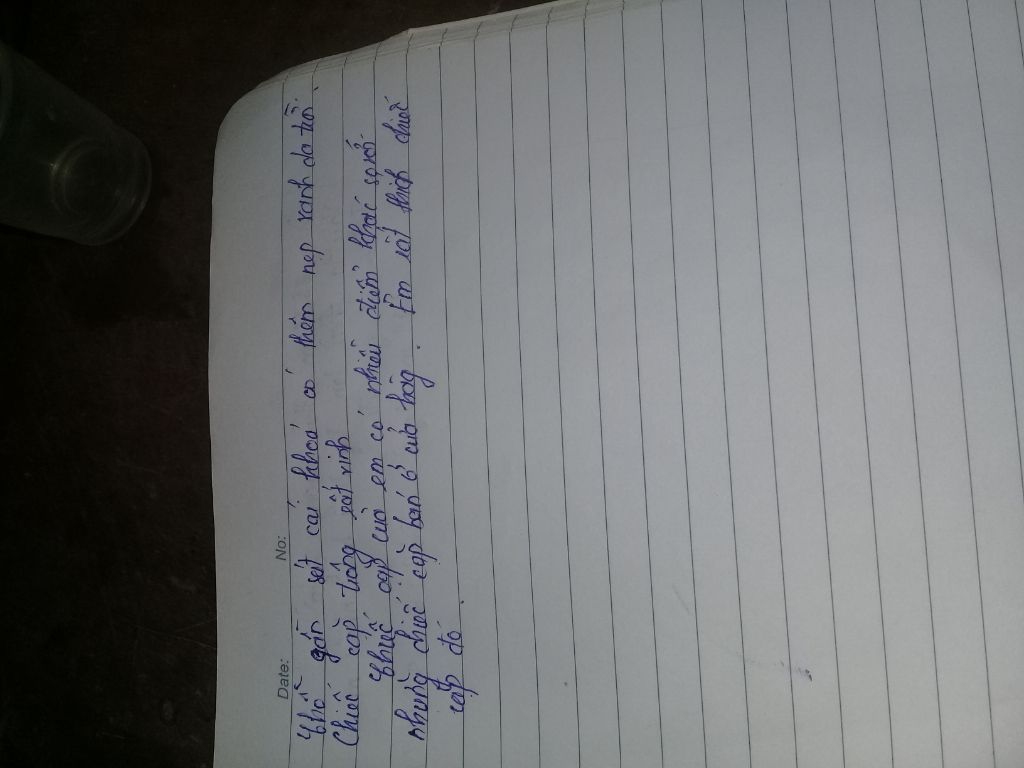 Date: No:
gần sát cái khoá có thêm nẹp xanh da trời.
Chiếc cặp trông rất xinh
Chiếc cặp của em có nhiều điểm khác so với
những chiếc cặp bán ở cửa hàng. Em rất thích chiếc
cặp đó